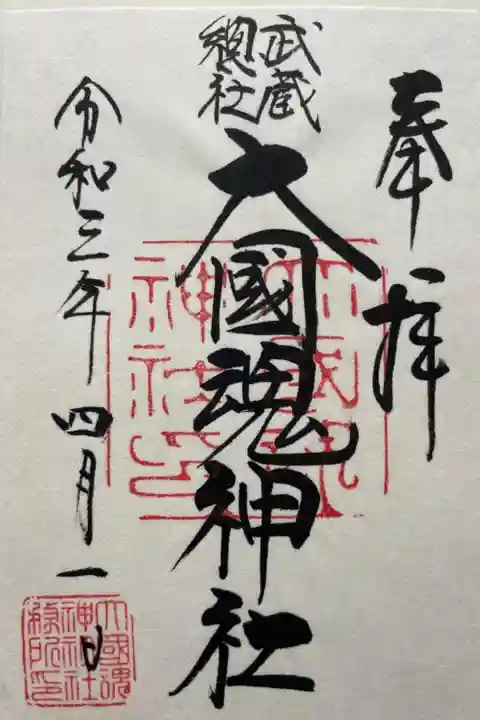 奉拝
武蔵
總社
大國魂神社
令和三年四月一日
大國魂
神社
大國魂
神社
務所印